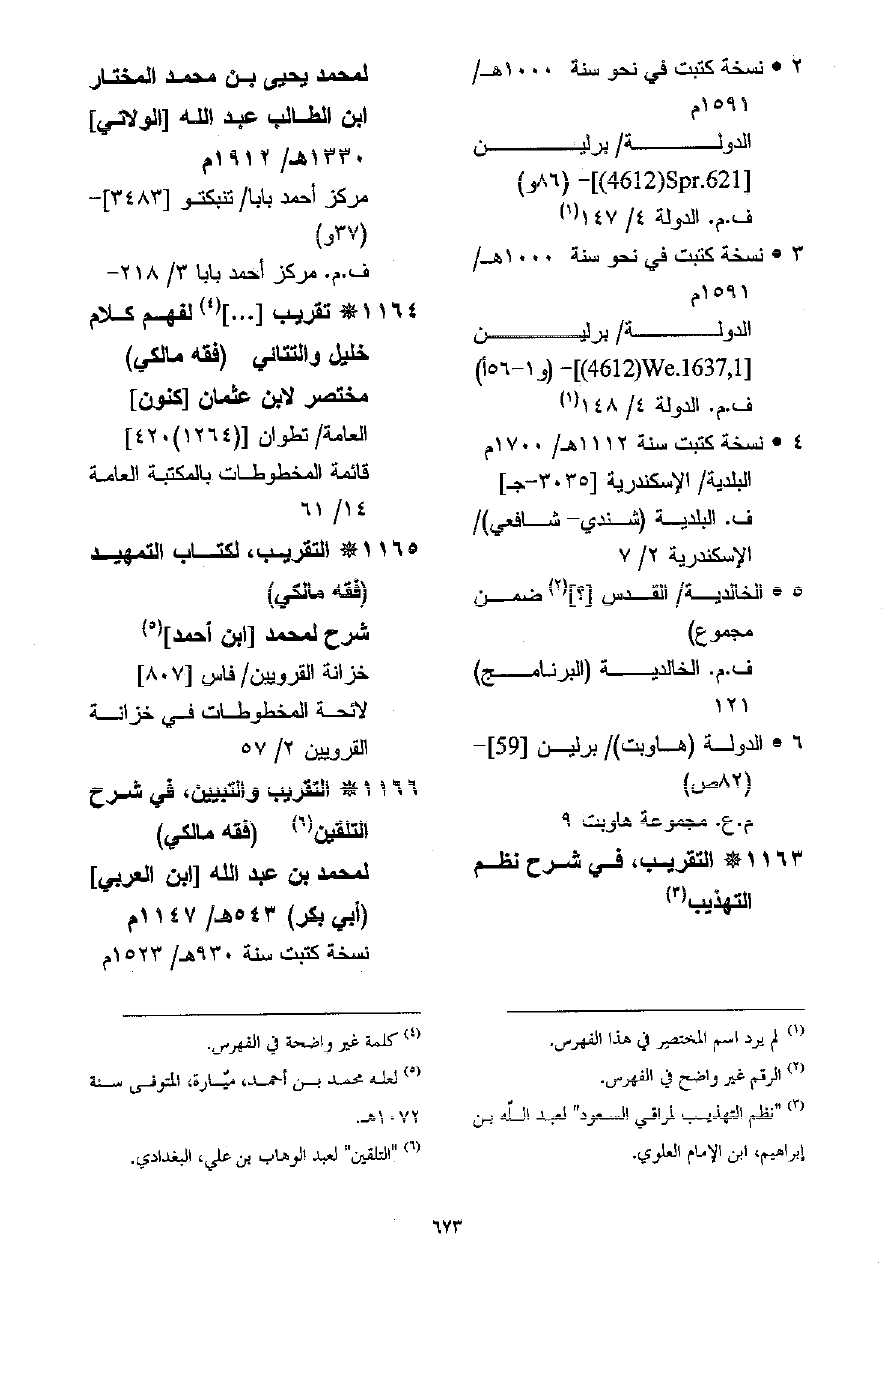 ٢ • نسخة كتبت في نحو سنة ١٠٠٠هـ/
١٥٩١م
الدولة/ برلين
[Spr.621(4612)]- (٨٦و)
ف.م. الدولة ٤/ ١٤٧(١)
٣ • نسخة كتبت في نحو سنة ١٠٠٠هـ/
١٥٩١م
الدولة/ برلين
[We.1637,1(4612)]- (و١-٥٦أ)
ف.م. الدولة ٤/ ١٤٨(١)
٤ • نسخة كتبت سنة ١١١٢هـ/ ١٧٠٠م
البلدية/ الإسكندرية [٣٠٣٥-جـ]
ف. البلدية (شندي- شافعي)/
الإسكندرية ٢/ ٧
٥ • الخالدية/ القدس [؟](٢) ضمن
مجموع)
ف.م. الخالدية (البرنامج)
١٢١
٦ • الدولة (هاوبت)/ برلين [59]-
(٨٢ص)
م.ع. مجموعة هاوبت ٩
١١٦٣ ※ التقريب، في شرح نظم
التهذيب(٣)
لمحمد يحيى بن محمد المختار
ابن الطالب عبد الله [الولاتي]
١٣٣٠هـ/ ١٩١٢م
مركز أحمد بابا/ تنبكتو [٣٤٨٣]-
(٣٧و)
ف.م. مركز أحمد بابا ٣/ ٢١٨-
١١٦٤ ※ تقريب [...](٤) لفهم كلام
خليل والتتائي (فقه مالكي)
مختصر لابن عثمان [كنون]
العامة/ تطوان [(١٢٦٤)٤٢٠]
قائمة المخطوطات بالمكتبة العامة
١٤/ ٦١
١١٦٥ ※ التقريب، لكتاب التمهيد
(فقه مالكي)
شرح لمحمد [ابن أحمد](٥)
خزانة القرويين/ فاس [٨٠٧]
لائحة المخطوطات في خزانة
القرويين ٢/ ٥٧
١١٦٦ ※ التقريب والتبيين، في شرح
التلقين(٦) (فقه مالكي)
لمحمد بن عبد الله [ابن العربي]
(أبي بكر) ٥٤٣هـ/ ١١٤٧م
نسخة كتبت سنة ٩٣٠هـ/ ١٥٢٣م
(١) لم يرد اسم المختصر في هذا الفهرس.
(٢) الرقم غير واضح في الفهرس.
(٣) "نظم التهذيب لمراقي السعود" لعبد الله بن
إبراهيم، ابن الإمام العلوي.
(٤) كلمة غير واضحة في الفهرس.
(٥) لعله محمد بن أحمد، ميّارة، المتوفى سنة
١٠٧٢هـ.
(٦) "التلقين" لعبد الوهاب بن علي، البغدادي.
٦٧٣